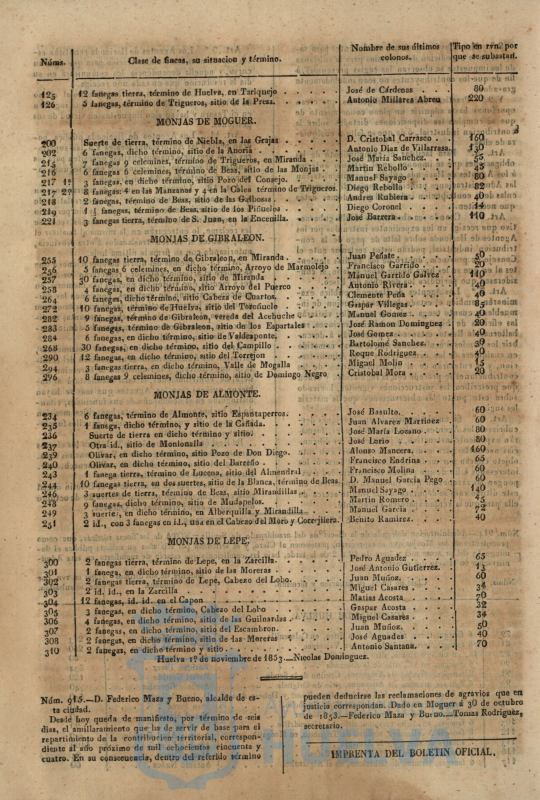 Núms. Clase de fincas, su situacion y término. Nombre de sus últimos colonos. Tipo en rvn. por que se subastan.
125 12 fanegas tierra, término de Huelva, en Tariquejo José de Cárdenas 80
126 5 fanegas, término de Trigueros, sitio de la Presa. Antonio Millares Abreu 220
MONJAS DE MOGUER.
200 Suerte de tierra, término de Niebla, en las Grajas D. Cristobal Carrasco 160
202 6 fanegas, dicho término, sitio de la Anoria Antonio Diaz de Villarrasa 130
215 7 fanegas 9 celemines, término de Trigueros, en Miranda José María Sanchez. 55
216 6 fanegas 6 celemines, término de Beas, sitio de las Monjas Martin Rebollo
217 1º 3 fanegas, en dicho término, sitio Pozo del Consejo. Manuel Sayago 80
217 2º 8 fanegas: 4 en las Manzanas y 4 en la Calea término de Trigueros. Diego Rebollo 82
218 2 fanegas, término de Beas, sitio de las Andres Rubiera 40
219 1 ½ fanegas, término de Beas, sitio de los Piñuelos Diego Coronel 14
221 3 fanegas tierra, término de S. Juan, en la Encenilla. José Barrera 110
MONJAS DE GIBRALEON.
255 10 fanegas tierra, término de Gibraleon, en Miranda Juan Peñate 50
256 5 fanegas 6 celemines, en dicho término, Arroyo de Marmolejo Francisco Garrido 20
257 30 fanegas, en dicho término, sitio de Miranda Manuel Garrido Galvez 110
258 4 fanegas, en dicho término, sitio Arroyo del Puerco Antonio Rivera 40
264 6 fanegas, dicho término, sitio Cabeza de Cuartos. Clemente Peña 40
272 10 fanegas, término de Huelva, sitio del Toruñuelo Gaspar Villegas 85
282 9 fanegas, término de Gibraleon, vereda del Acebuche Manuel Gomez 40
283 5 fanegas, término de Gibraleon, sitio de los Espartales José Ramon Dominguez 20
284 6 fanegas, en dicho término, sitio de Valdesponte. José Gomez 40
268 30 fanegas, en dicho término, sitio del Campillo Bartolomé Sanchez. 30
290 12 fanegas, en dicho término, sitio del Torrejon Roque Rodriguez 40
294 3 fanegas tierra, en dicho término, Valle de Mogalla Miguel Molin 15
296 8 fanegas 9 celemines, dicho término, sitio de Domingo Negro Cristobal Mora 20
MONJAS DE ALMONTE.
234 6 fanegas, término de Almonte, sitio Espantaperros. José Basulto. 60
235 1 fanega, dicho término, y sitio de la Cañada. Juan Alvarez Martinez 60
236 Suerte de tierra en dicho término y sitio. José María Lozano 80
237 Otra id., sitio de Monlonalla José Lario 80
239 Olivar, en dicho término, sitio Pozo de Don Diego. Alonso Mancera. 160
240 Olivar, en dicho término, sitio del Barreño Francisco Endrina 65
243 1 fanega tierra, término de Lucena, sitio del Almendral Francisco Molina 60
244 10 fanegas tierra, en dos suertes, sitio de la Blanca, término de Beas. D. Manuel García Pego 60
246 3 suertes de tierra, término de Beas, sitio Mirandillas Manuel Sayago 140
248 9 fanegas, dicho término, sitio de Mudapelos. Martin Romero 45
249 3 suertes, en dicho término, en Alberquilla y Mirandilla Manuel García 72
251 2 id., con 3 fanegas en id., una en el Cabezo del Moro y Correjilera. Benito Ramirez. 40
MONJAS DE LEPE.
300 2 fanegas tierra, término de Lepe, en la Zarcilla. Pedro Aguadez 65
301 1 fanega, en dicho término, sitio de las Moreras José Antonio Gutierrez. 13
302 2 fanegas tierra, término de Lepe, Cabezo del Lobo. Juan Muñoz. 60
303 2 id. id., en la Zarcilla Miguel Casares 36
304 12 fanegas, id. id. en el Capon Matias Acosta 70
305 3 fanegas, en dicho término, Cabezo del Lobo Gaspar Acosta 32
306 4 fanegas, en dicho término, sitio de las Guiloardas Miguel Casares 34
307 2 fanegas, en dicho término, sitio del Escambron. Juan Muñoz. 50
308 2 fanegas, en dicho término, sitio de las Moreras José Aguadez 40
310 2 fanegas, en dicho término y sitio. Antonio Santana. 70
Huelva 1º de noviembre de 1853.—Nicolas Dominguez.
Núm. 915.—D. Federico Maza y Bueno, alcalde de es-
ta ciudad.
Desde hoy queda de manifiesto, por término de seis
dias, el amillaramiento que ha de servir de base para el
repartimiento de la contribucion territorial, correspon-
diente al año próximo de mil ochocientos cincuenta y
cuatro. En su consecuencia, dentro del referido término
pueden deducirse las reclamaciones de agravios que en
justicia correspondan. Dado en Moguer á 30 de octubre
de 1853.—Federico Maza y Bueno.—Tomas Rodriguez,
secretario.
IMPRENTA DEL BOLETIN OFICIAL.
HUELVA